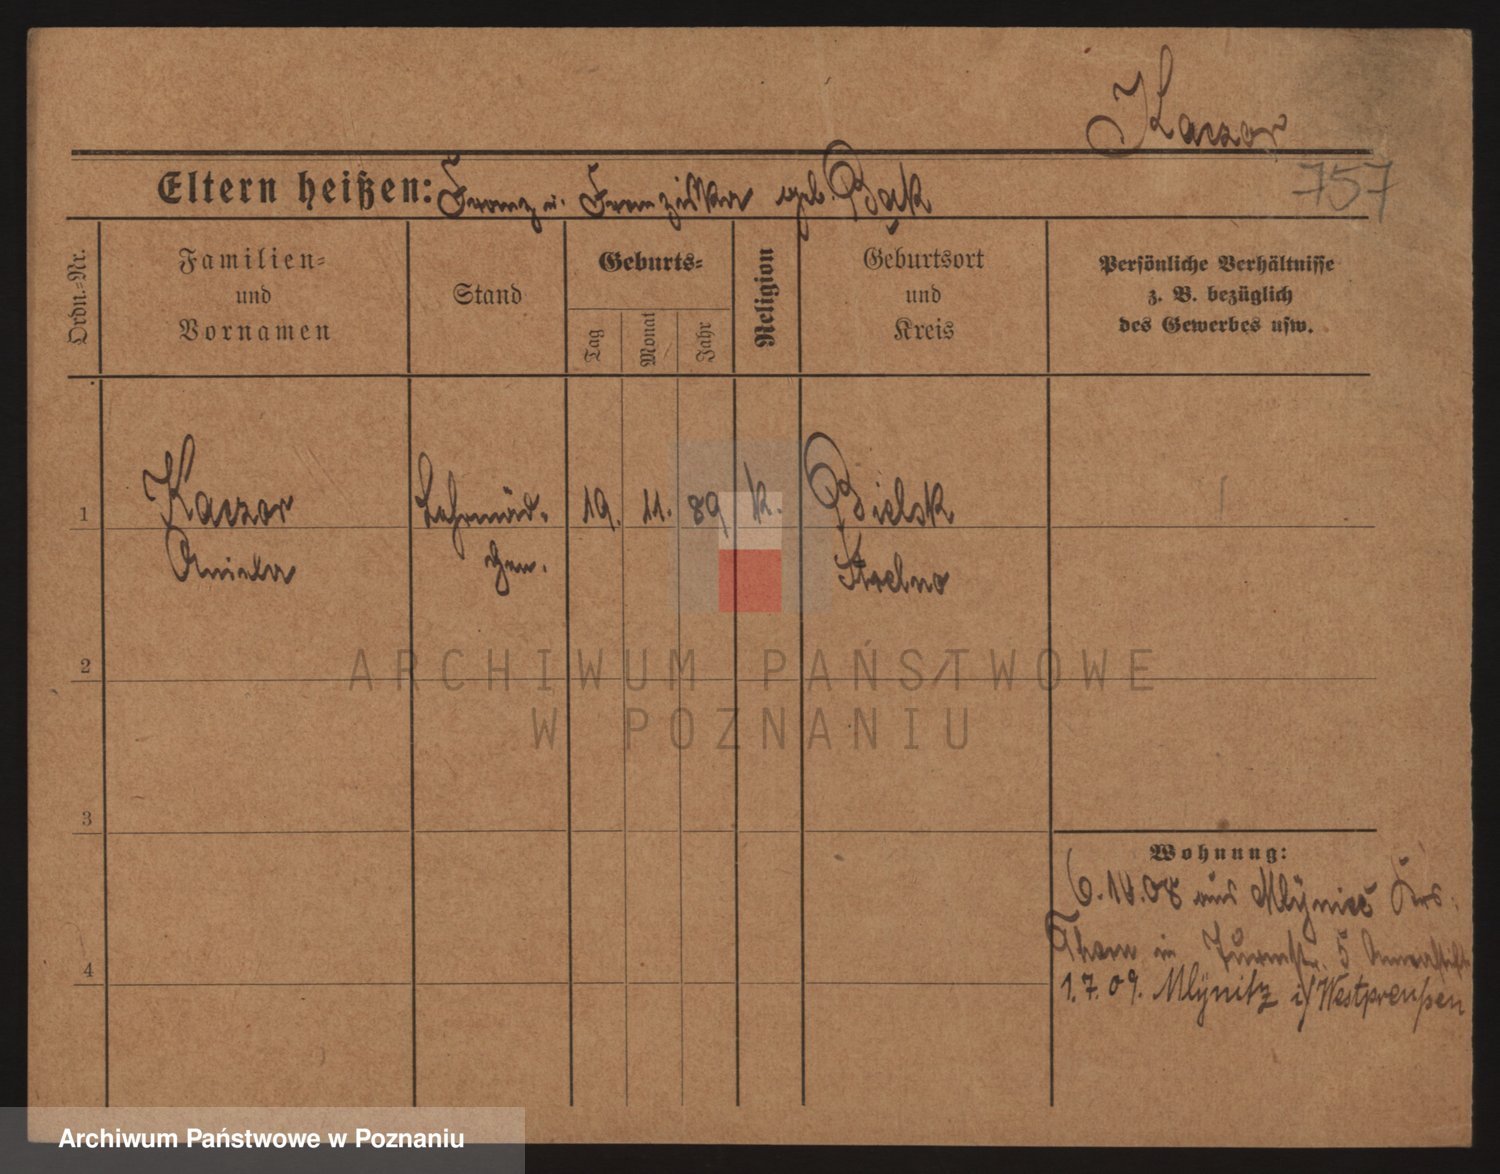 Kaczor
757
Eltern heißen: Franz u. Franziska geb. Bąk
Ordn.-Nr.
Familien-
und
Vornamen
Stand
Geburts-
Tag
Monat
Jahr
Religion
Geburtsort
und
Kreis
Persönliche Verhältnisse
z. B. bezüglich
des Gewerbes usw.
1
Kaczor
Aniela
Lehrmäd-
chen.
19. 11. 89
k.
Bielsk
Strelno
2
ARCHIWUM PAŃSTWOWE
W POZNANIU
3
4
Wohnung:
aus Mlyniec Krs.
Thorn in Turmstr. 5
1.7.09. Mlynitz i/Westpreußen
Archiwum Państwowe w Poznaniu